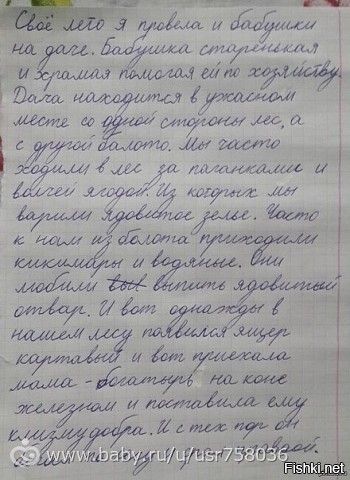 Своё лето я провела и бабушки
на даче. Бабушка старенькая
и храмая помогая ей по хозяйству.
Дача находится в ужасном
месте со одной стороны лес, а
с другой балото. Мы часто
ходили в лес за паганками и
волчей ягодой. Из которых мы
варили ядовитое зелье. Часто
к нам из болота приходили
кикимары и водяные. Они
любили выпить ядовитый
отвар. И вот однажды в
нашем лесу появился ящер
картавый и вот приехала
мама - богатырь на коне
железном и поставила ему
клизму добра. И с тех пор он
www.baby.ru/u/usr758036
Fishki.net